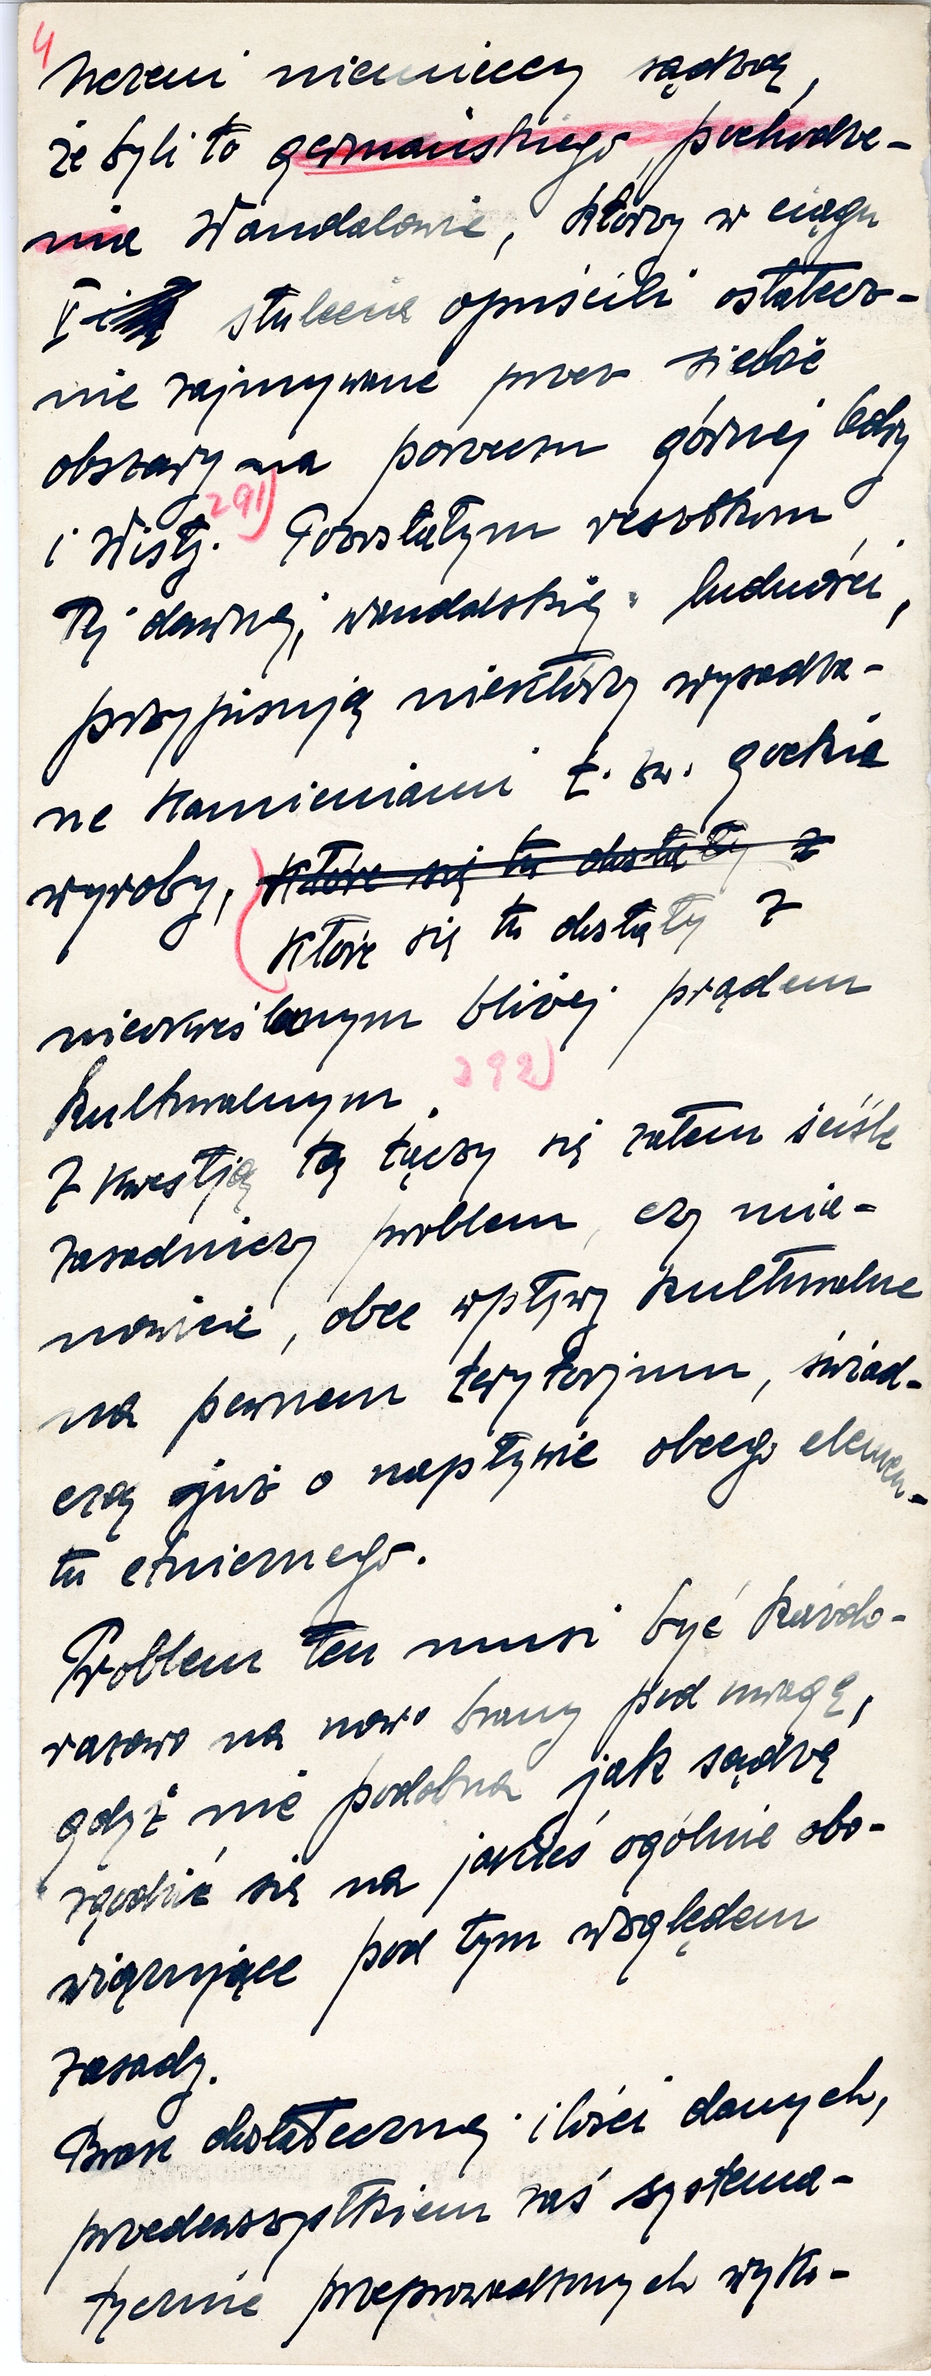 4
Uczeni niemieccy sądzą,
że byli to germańskiego pochodze-
nia Wandalowie, którzy w ciągu
V i stulecia opuścili ostatecz-
nie zajmywane przez siebie
obszary na porzeczu górnej Odry
i Wisły. 291) Pozostałym resztkom
tej dawnej, wandalskiej ludności,
przypisują niektórzy wysadza-
ne kamieniami t. zw. gockie
wyroby, które się tu dostały z
które się tu dostały z
nieokreślonym bliżej prądem
kulturalnym. 292)
Z kwestją tą łączy się zatem ściśle
zasadniczy problem, czy mia-
nowicie, obce wpływy kulturalne
na pewnem terytorjum, świad-
czą już o napływie obcego elemen-
tu etnicznego.
Problem ten musi być każdo-
razowo na nowo brany pod uwagę,
gdyż nie podobna jak sądzę
zgodzić się na jakieś ogólnie obo-
wiązujące pod tym względem
zasady.
Brak dostatecznej ilości danych,
przedewszystkiem zaś systema-
tycznie przeprowadzonych wyko-